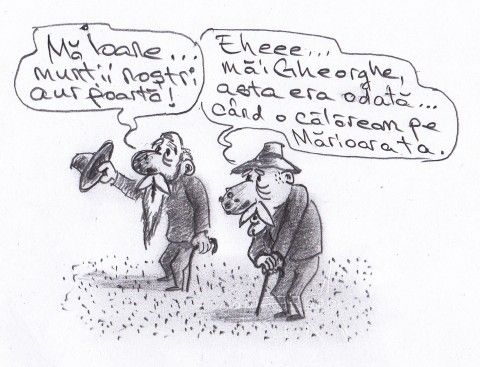 Mă Ioane...
munții noștri
aur poartă!
Eheee...
măi Gheorghe,
asta era odată...
când o călăream pe
Mărioara ta.